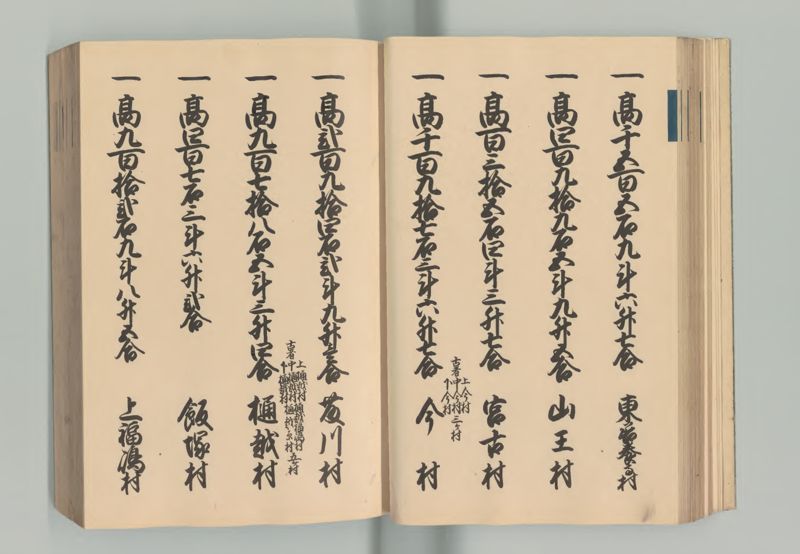 一高千五百五石九斗六升七合 東善養寺村
一高四百九拾九石五斗九升五合 山王村
一高百三拾五石四斗三升七合 宮古村
古者 上今村 中今村 下今村 三ヶ村
一高千百九拾七石三斗六升七合 今村
一高弐百九拾四石弐斗九升三合 藤川村
古者 上樋越村 中樋越村 下樋越村 樋越福嶋村 五ヶ村
一高九百七拾八石五斗三升四合 樋越村
一高四百七石三斗六升弐合 飯塚村
一高九百拾弐石九斗八升五合 上福嶋村